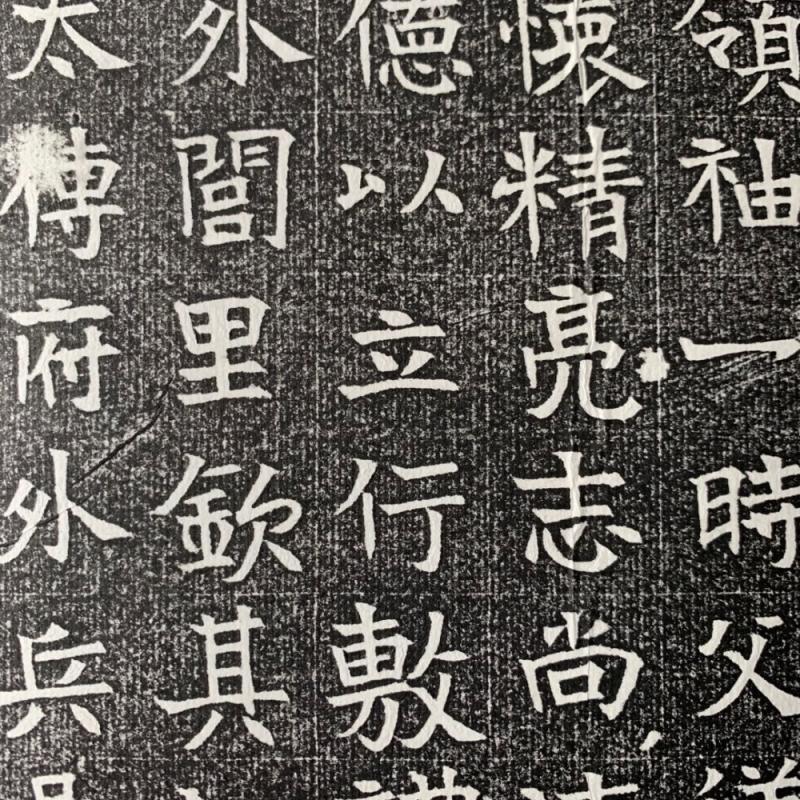 領袖一時父
懷精亮志尚
德以立行敷
外閭里欽其
太傅府外兵